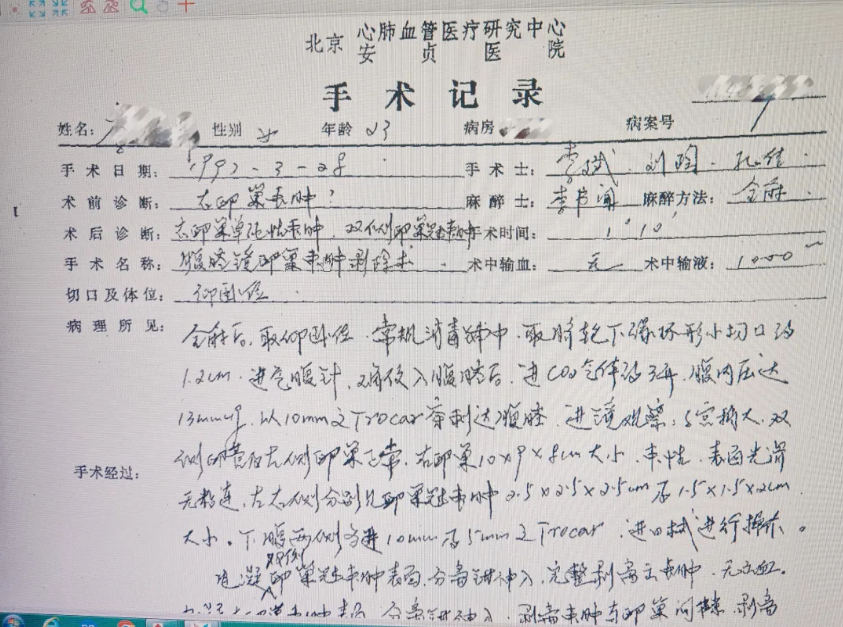 北京 心肺血管医疗研究中心
安贞医院
手术记录
姓名： 性别 女 年龄 23 病房 病案号
手术日期： 1992-3-28 手术士： 李斌 刘陶 孔佳
术前诊断： 右卵巢囊肿？ 麻醉士： 李书闻 麻醉方法： 全麻
术后诊断： 右卵巢单纯性囊肿，双侧卵巢冠囊肿 手术时间： 1°10'
手术名称： 腹腔镜卵巢囊肿剥除术 术中输血： 无 术中输液： 1000
切口及体位： 仰卧位
病理所见： 全麻后，取仰卧位，常规消毒铺巾，取脐轮下缘环形小切口约
1.2cm，进气腹针，确信入腹腔后，进CO2气体约3升，腹内压达
13mmHg，以10mm之Trocar穿刺达腹腔，进镜观察，宫稍大，双
手术经过： 侧卵管及左侧卵巢正常，右卵巢10×9×8cm大小，囊性，表面光滑
无粘连，左右侧分别见卵巢冠囊肿2.5×2.5×2.5cm及1.5×1.5×2cm
大小。下腹两侧各进10mm及5mm之Trocar，进口械进行操作。
电凝双侧卵巢冠囊肿表面，分离钳伸入，完整剥离出囊肿，无出血。
囊肿表面，分离钳伸入，剥离囊肿与卵巢间隙，剥离